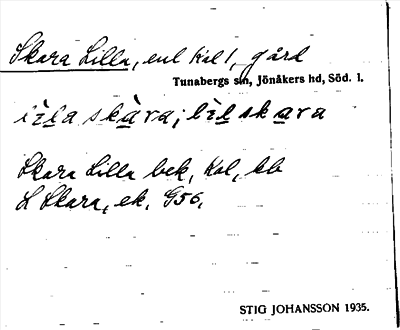 Skara Lilla, enl Kal 1, gård
Tunabergs sn, Jönåkers hd, Söd. l.
skàra;
Skara Lilla bek, Kal, kb
L Skara, ek, G56,
STIG JOHANSSON 1935.